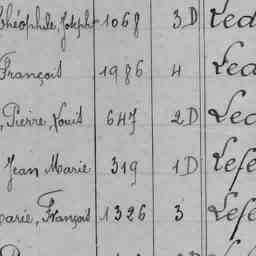 Théophile, Joseph 1068 3D Led
François 1986 4 Led
, Pierre, Louis 647 2D Led
Jean Marie 319 1D Lefe
Marie, François 1326 3 Lefe